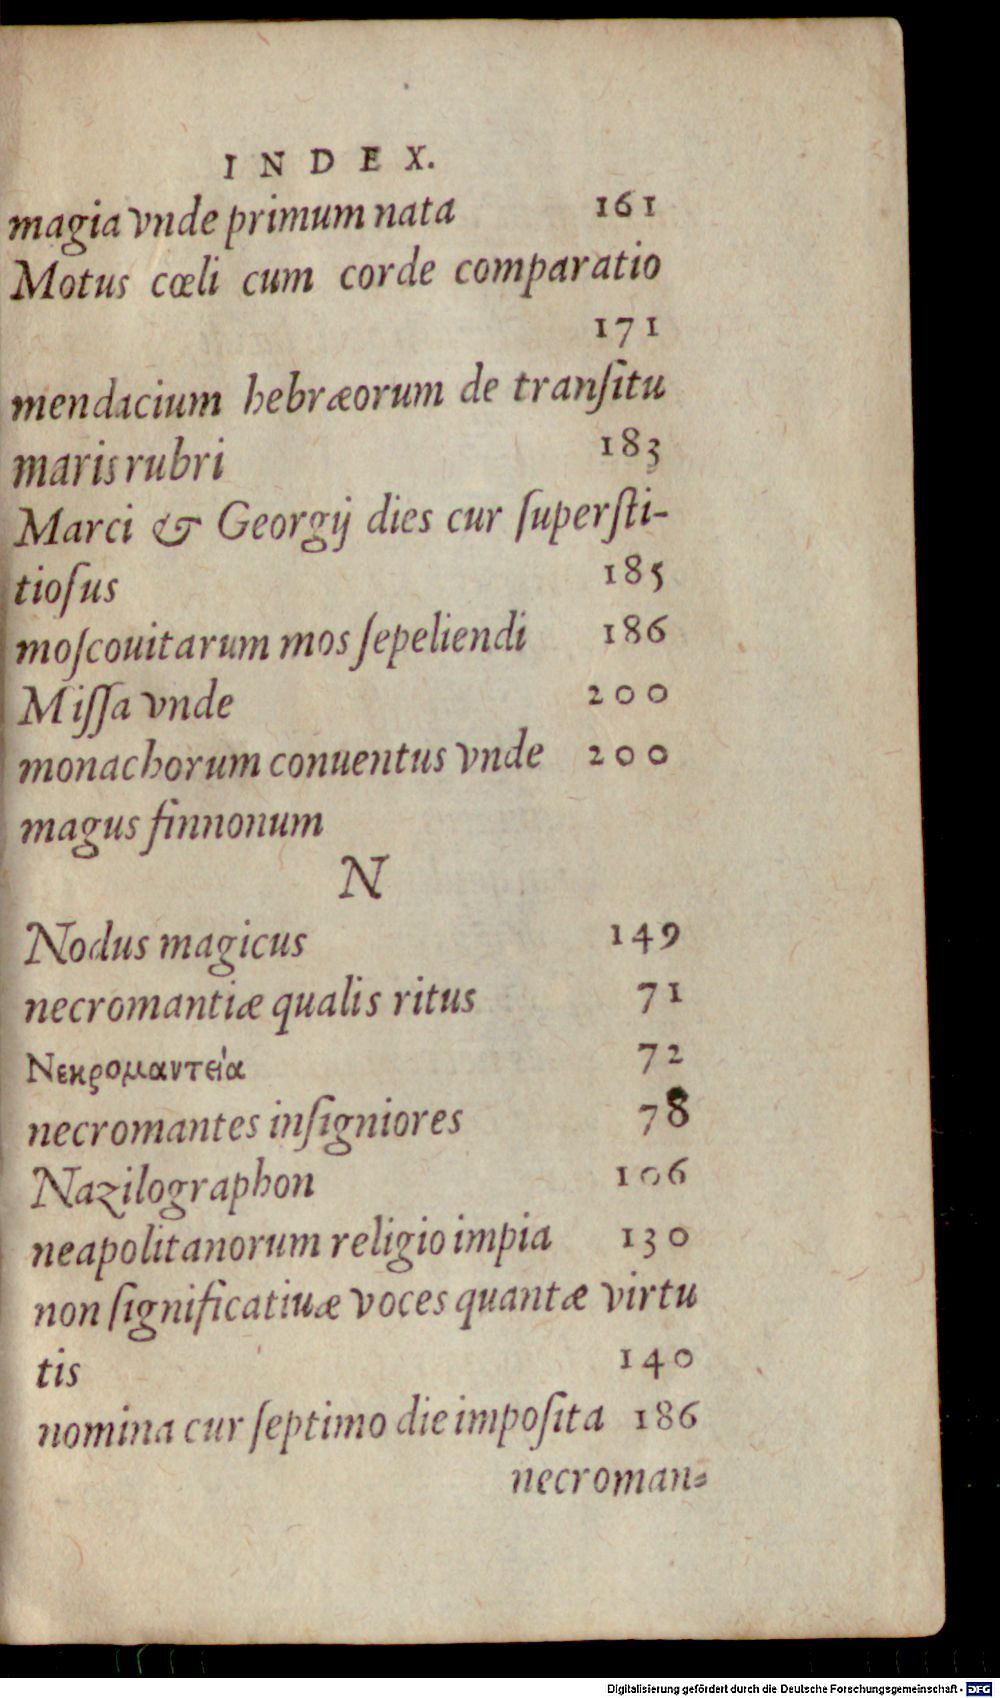 INDEX.
magia vnde primum nata 161
Motus cœli cum corde comparatio
171
mendacium hebræorum de tranſitu
maris rubri 183
Marci & Georgij dies cur ſuperſti-
tioſus 185
moſcouitarum mos ſepeliendi 186
Miſſa vnde 200
monachorum conuentus vnde 200
magus finnonum
N
Nodus magicus 149
necromantiæ qualis ritus 71
Νεκρομαντεία 72
necromantes inſigniores 78
Nazilographon 106
neapolitanorum religio impia 130
non ſignificatiuæ voces quantæ virtu
tis 140
nomina cur ſeptimo die impoſita 186
necroman=
Digitalisierung gefördert durch die Deutsche Forschungsgemeinschaft - DFG